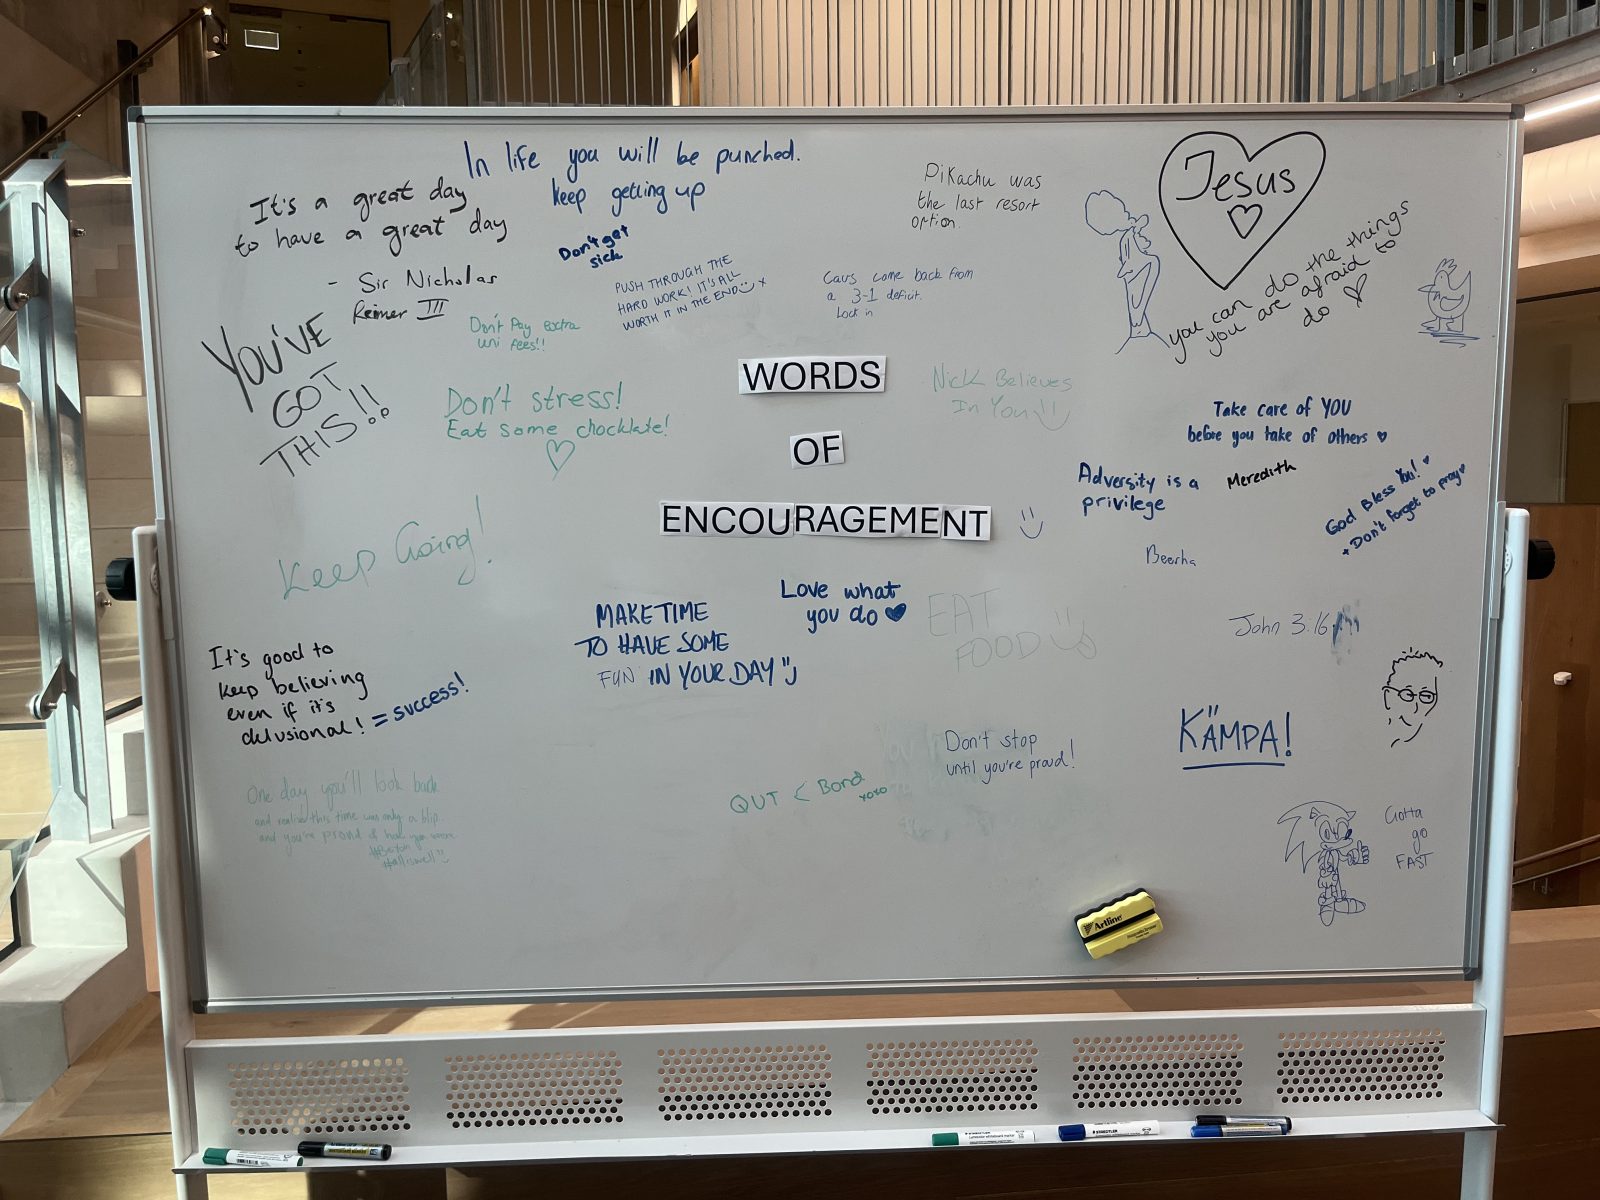 In life you will be punched.
keep getting up
It's a great day
to have a great day
- Sir Nicholas
Reimer III
Don't get
sick
PUSH THROUGH THE
HARD WORK! IT'S ALL
WORTH IT IN THE END :) x
Pikachu was
the last resort
option.
Cavs came back from
a 3-1 deficit.
Lock in
Jesus
you can do the things
you are afraid to
do ♡
YOU'VE
GOT
THIS!!
Don't Pay extra
uni fees!!
Don't stress!
Eat some chocklate!
WORDS
OF
ENCOURAGEMENT
Nick Believes
In You :)
Take care of YOU
before you take of others ♥
Adversity is a
privilege
Meredith
God Bless You! ♥
+ Don't forget to pray ♥
Beerha
Keep Going!
MAKE TIME
TO HAVE SOME
FUN IN YOUR DAY :)
Love what
you do ♥
EAT
FOOD :)
John 3:16
It's good to
keep believing
even if it's
delusional! = success!
KÄMPA!
Don't stop
until you're proud!
QUT < Bond
xoxo
One day you'll look back
and realise this time was only a blip.
and you're proud of how you were
#alliswell :)
Gotta
go
FAST
Artline
STAEDTLER
STAEDTLER